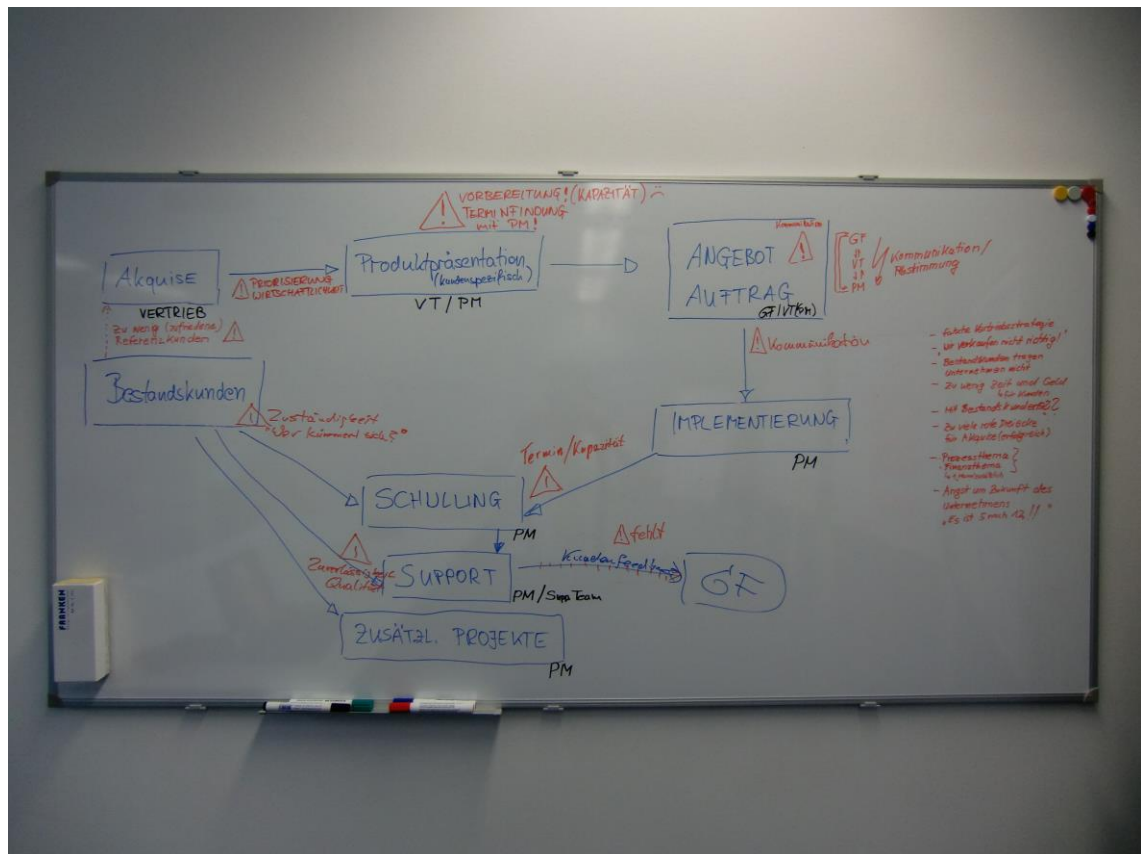 VORBEREITUNG! (KAPAZITÄT)
TERMINFINDUNG
mit PM!
Akquise
VERTRIEB
PRIORISIERUNG
WIRTSCHAFTLICHKEIT
Produktpräsentation
(kundenspezifisch)
VT/PM
Kommunikation
ANGEBOT
AUFTRAG
GF/VT(PM)
GF
VT
PM
Kommunikation/
Abstimmung
Zu wenig (zufriedene)
Referenzkunden
Bestandskunden
Zuständigkeit
"Wer kümmert sich?"
Kommunikation
IMPLEMENTIERUNG
PM
Termin/Kapazität
SCHULUNG
PM
Zuverlässigkeit
Qualität
SUPPORT
PM/Supp Team
fehlt
Kundenfeedback
GF
ZUSÄTZL. PROJEKTE
PM
- falsche Vertriebsstrategie
- "Wir verkaufen nicht richtig!"
- Bestandskunden tragen
Unternehmen nicht
- Zu wenig Zeit und Geld
für Kunden
- Mit Bestandskunden
- Zu viele rote Dreiecke
für Akquise (erfolgreich)
- Prozessthema
- Finanzthema
- Angst um Zukunft des
Unternehmens
"Es ist 5 nach 12!!"
FRANKEN